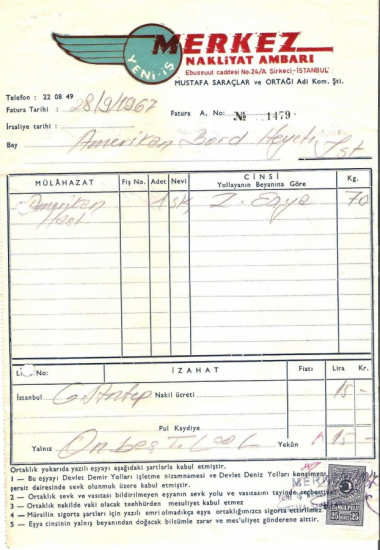 YENİ-İŞ
MERKEZ
NAKLİYAT AMBARI
Ebussuut caddesi No:24/A Sirkeci-İSTANBUL
MUSTAFA SARAÇLAR ve ORTAĞI Adi Kom. Şti.
Telefon : 22 08 49
Fatura Tarihi : 28/9/1967
Fatura A, No: № 1479
İrsaliye tarihi :
Bay Amerikan Bord Heyeti İst
MÜLÂHAZAT Fiş No. Adet Nevi CİNSİ Yollayanın Beyanına Göre Kg.
Amerikan 1 Z. Eşya 70
Hast
No: İZAHAT Fiatı Lira Kr.
İstanbul G.Antep Nakil ücreti 15 -
Pul Kaydiye
Yalnız Onbeş T. Yekün 15 -
Ortaklık yukarıda yazılı eşyayı aşağıdaki şartlarla kabul etmiştir.
1 — Bu eşyayı Devlet Demir Yolları işletme nizamnamesi ve Devlet Deniz Yolları konşimen
perait dairesinde sevk olunmak üzere kabul etmiştir.
2 — Ortaklık sevk ve vasıtası bildirilmeyen eşyanın sevk yolu ve vasıtasını tayinde serbesttir
3 — Ortaklık nakilde vaki olacak teehhürden mesuliyet kabul etmez
4 — Mürsilin sigorta şartları için yazılı emri olmadıkça eşya ortaklığımızca sigorta ettirilmez
5 — Eşya cinsinin yalnış beyanından doğacak bilcümle zarar ve mes'uliyet gönderene aittir.
25 25